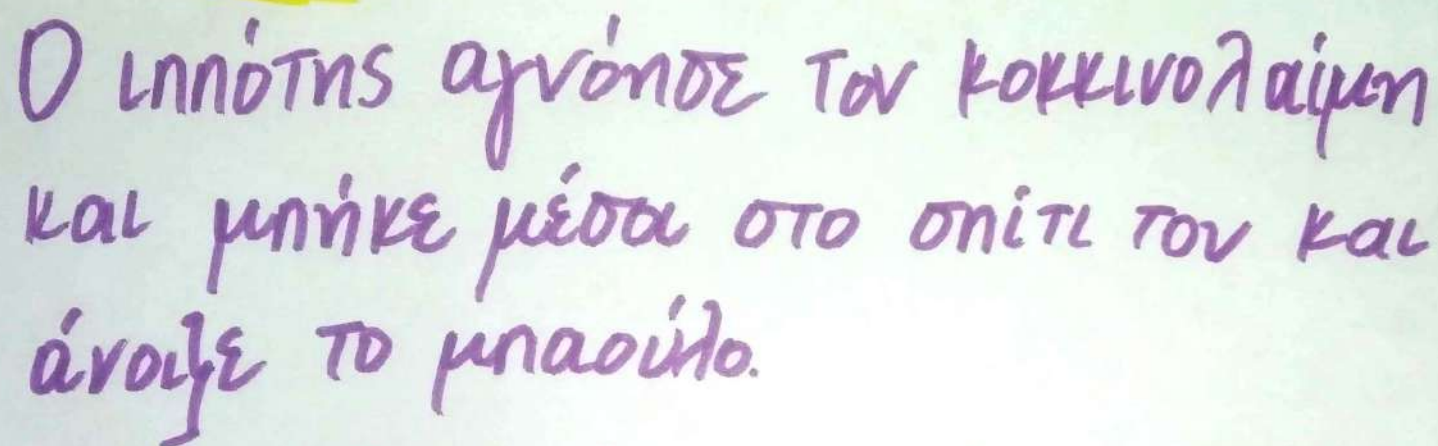 Ο ιππότης αγνόησε τον κοκκινολαίμη
και μπήκε μέσα στο σπίτι του και
άνοιξε το μπαούλο.